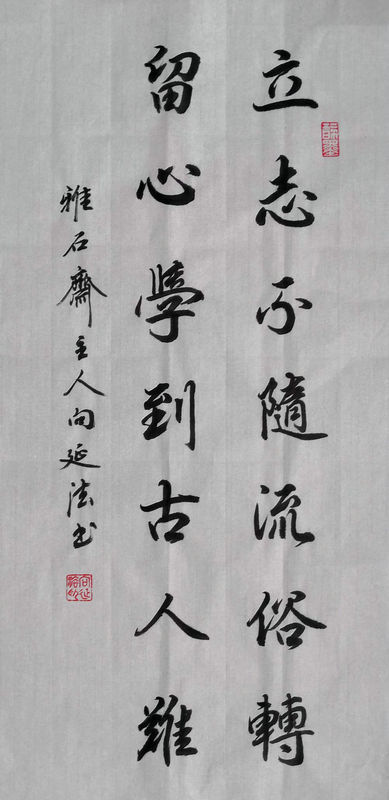 立志不隨流俗轉
留心學到古人難
雅石齋主人向延法書